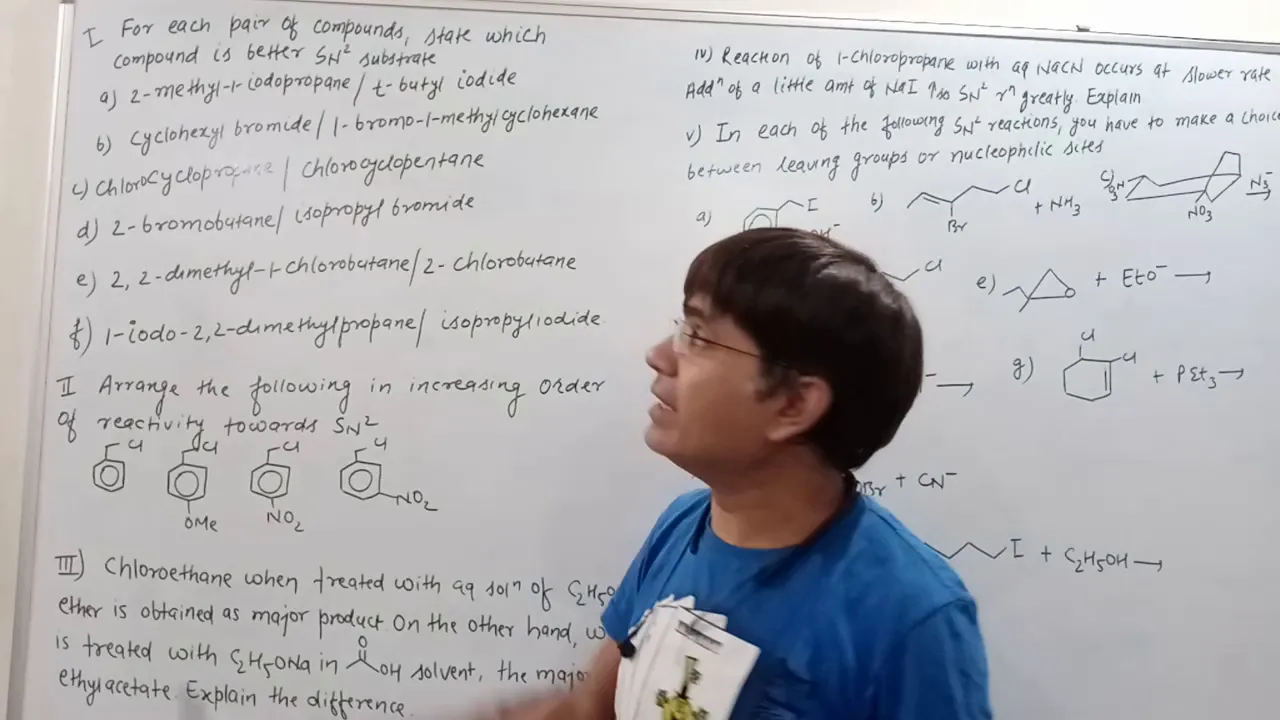 I For each pair of compounds, state which
compound is better SN² substrate
a) 2-methyl-1-iodopropane / t-butyl iodide
b) Cyclohexyl bromide / 1-bromo-1-methylcyclohexane
c) Chlorocyclopropane / chlorocyclopentane
d) 2-bromobutane / isopropyl bromide
e) 2,2-dimethyl-1-chlorobutane / 2-chlorobutane
f) 1-iodo-2,2-dimethylpropane / isopropyliodide
II Arrange the following in increasing order
of reactivity towards SN²
Cl Cl Cl Cl
OMe NO2 NO2
III) Chloroethane when treated with aq solⁿ of C2H5O
ether is obtained as major product. On the other hand, w
is treated with C2H5ONa in O OH solvent, the major
ethylacetate. Explain the difference.
IV) Reaction of 1-Chloropropane with aq NaCN occurs at slower rate
Addⁿ of a little amt of NaI ↑so SN² rⁿ greatly. Explain
V) In each of the following SN² reactions, you have to make a choice
between leaving groups or nucleophilic sites
a) I OH⁻
b) Cl Br + NH3
c) NO3 N3⁻
Cl
e) O + EtO⁻ →
⁻ →
g) Cl Cl + PEt3 →
Br + CN⁻
I + C2H5OH →